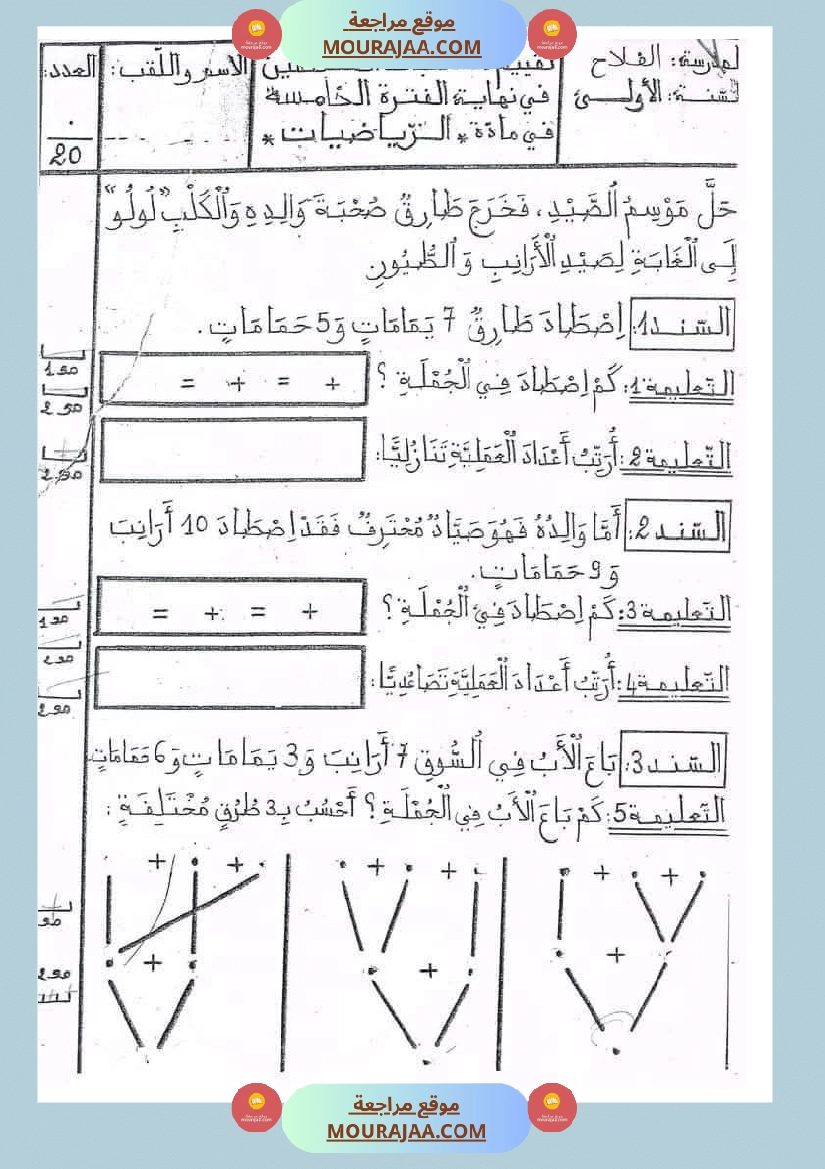 موقع مراجعة
MOURAJAA.COM
المدرسة: الفلاح
السّنة: الأولى
في نهاية الفترة الخامسة
في مادّة * الرّياضيات *
الاسم واللّقب:
العدد:
20
حَلَّ مَوْسِمُ الصَّيْدِ، فَخَرَجَ طَارِقٌ صُحْبَةَ وَالِدِهِ وَالْكَلْبِ "لُولُو"
إِلَى الْغَابَةِ لِصَيْدِ الْأَرَانِبِ وَ الطُّيُورِ
السّند1: اِصْطَادَ طَارِقٌ 7 يَمَامَاتٍ وَ5 حَمَامَاتٍ.
التّعليمة1: كَمْ اِصْطَادَ فِي الْجُمْلَةِ ؟
+ = + =
التّعليمة2: أُرَتِّبُ أَعْدَادَ الْعَمَلِيَّةِ تَنَازُلِيًّا:
السّند2: أَمَّا وَالِدُهُ فَهُوَ صَيَّادٌ مُحْتَرِفٌ فَقَدْ اِصْطَادَ 10 أَرَانِبَ
وَ 9 حَمَامَاتٍ.
التّعليمة3: كَمْ اِصْطَادَ فِي الْجُمْلَةِ ؟
+ = + =
التّعليمة4: أُرَتِّبُ أَعْدَادَ الْعَمَلِيَّةِ تَصَاعُدِيًّا:
السّند3: بَاعَ الْأَبُ فِي السُّوقِ 7 أَرَانِبَ وَ3 يَمَامَاتٍ وَ6 حَمَامَاتٍ
التّعليمة5: كَمْ بَاعَ الْأَبُ فِي الْجُمْلَةِ ؟ أَحْسُبُ بِـ3 طُرُقٍ مُخْتَلِفَةٍ :
+ + + + + +
+ + +
موقع مراجعة
MOURAJAA.COM